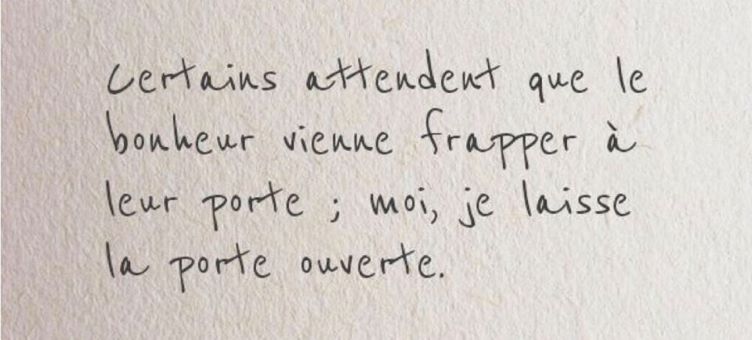 Certains attendent que le
bonheur vienne frapper à
leur porte ; moi, je laisse
la porte ouverte.